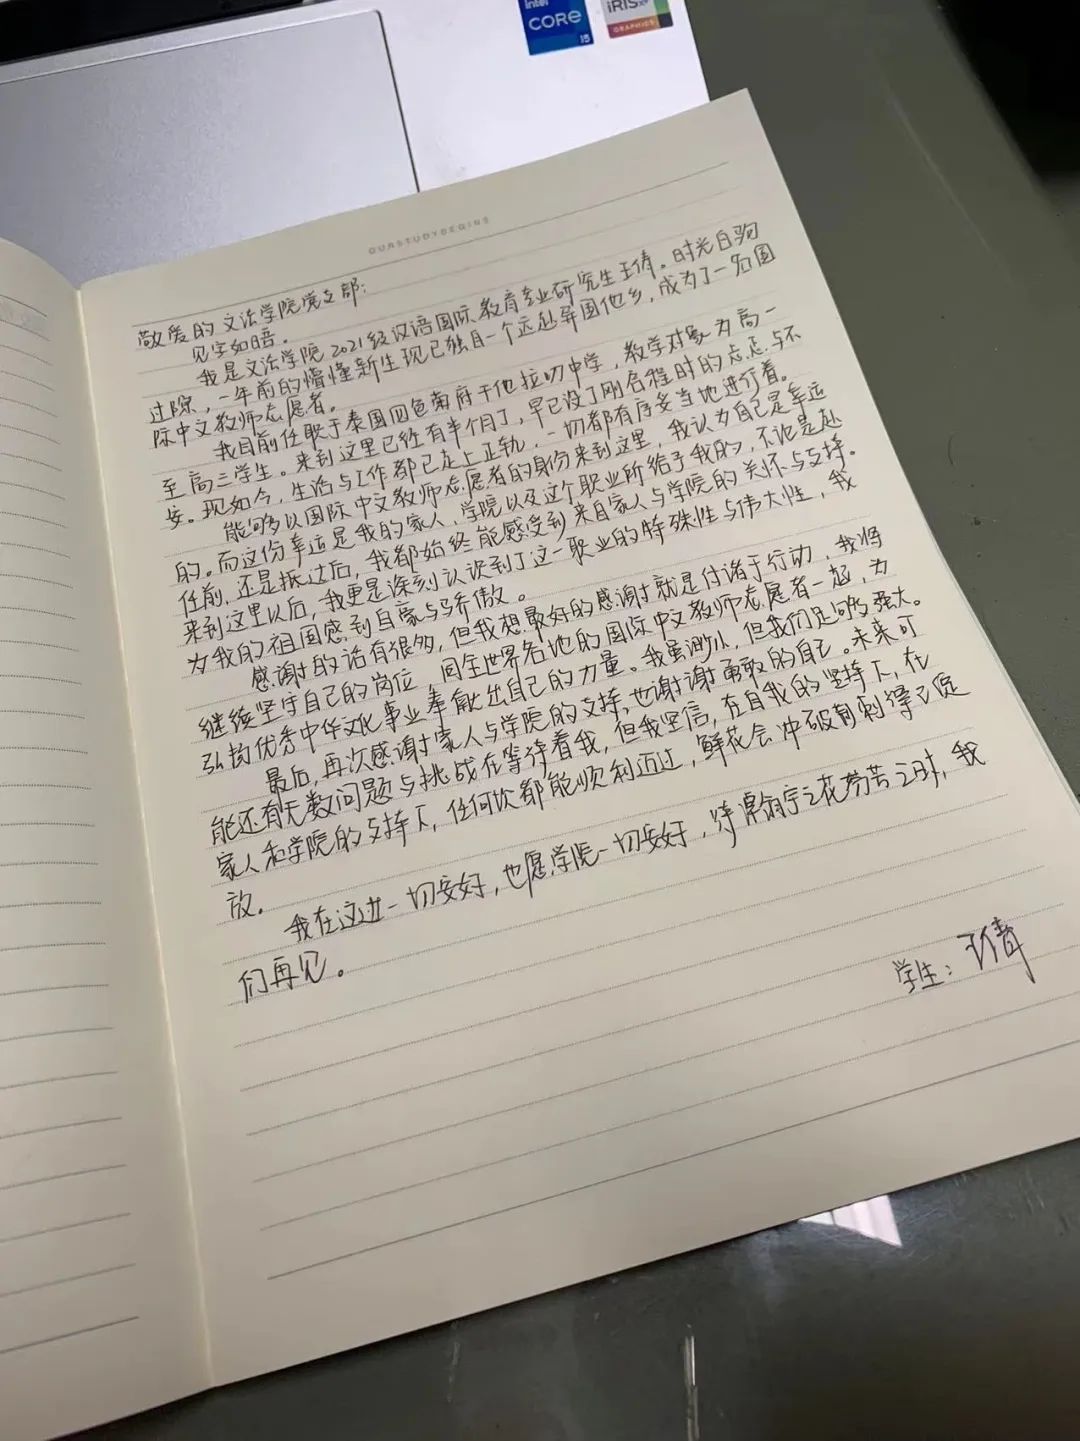 intel
CORE
i5
iRIS xe
GRAPHICS
OURSTUDYBEGINS
敬爱的文法学院党支部：
见字如晤。
我是文法学院2021级汉语国际教育专业研究生王倩。时光白驹
过隙，一年前的懵懂新生现已独自一个远赴异国他乡，成为了一名国
际中文教师志愿者。
我目前任职于泰国四色菊府干他拉叻中学，教学对象为高一
至高三学生。来到这里已经有半个月了，早已没了刚启程时的忐忑与不
安。现如今，生活与工作都已走上正轨，一切都有序妥当地进行着。
能够以国际中文教师志愿者的身份来到这里，我认为自己是幸运
的。而这份幸运是我的家人、学院以及这个职业所给予我的，不论是赴
任前，还是抵达后，我都始终能感受到来自家人与学院的关怀与支持。
来到这里以后，我更是深刻认识到了这一职业的特殊性与伟大性，我
为我的祖国感到自豪与骄傲。
感谢的话有很多，但我想最好的感谢就是付诸于行动，我将
继续坚守自己的岗位，同全世界各地的国际中文教师志愿者一起，为
弘扬优秀中华文化事业奉献出自己的力量。我虽渺小，但我们足够强大。
最后，再次感谢家人与学院的支持，也谢谢勇敢的自己。未来可
能还有无数问题与挑战在等待着我，但我坚信，在自我的坚持下，在
家人和学院的支持下，任何坎都能顺利迈过，鲜花会冲破荆棘得已绽
放。
我在这边一切安好，也愿学院一切安好，待 之花 之时，我
们再见。
学生：王倩